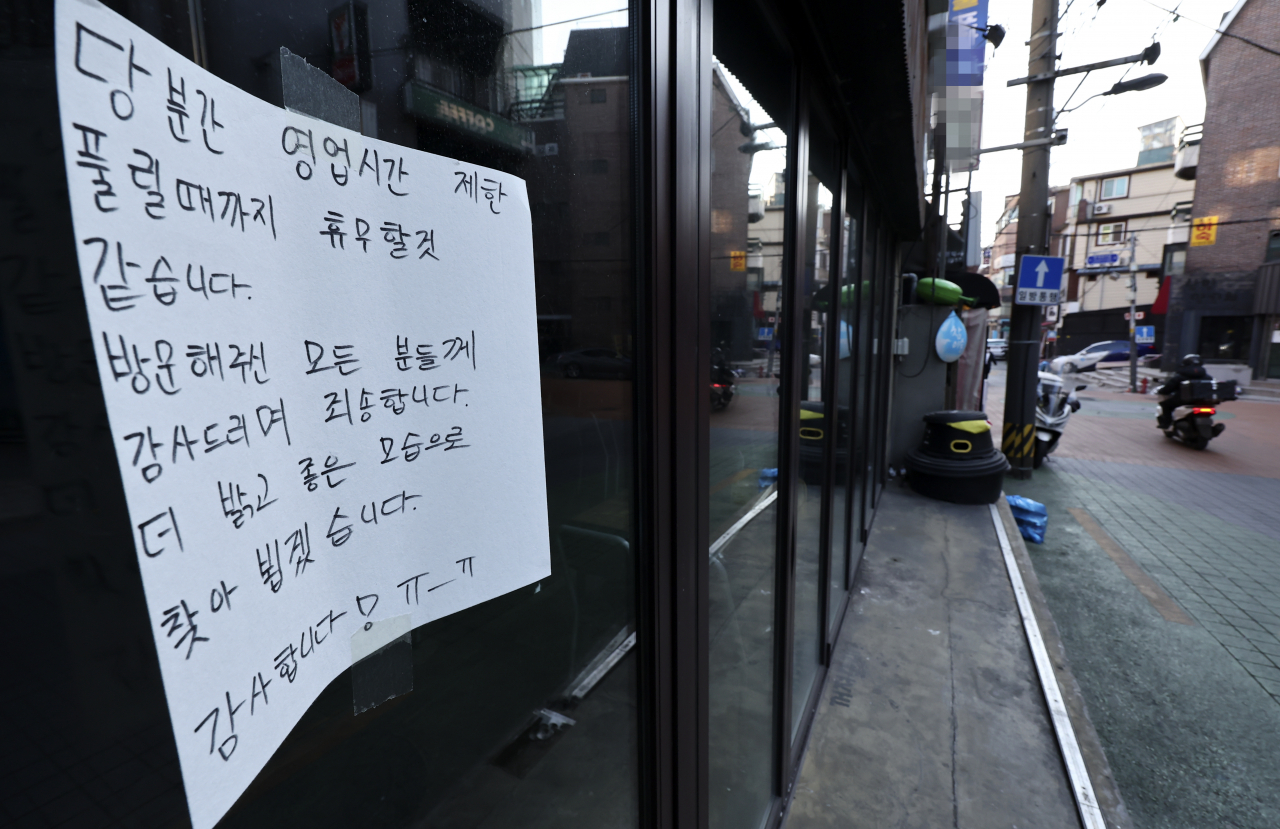 당분간 영업시간 제한
풀릴때까지 휴무할것
같습니다.
방문해주신 모든 분들께
감사드리며 죄송합니다.
더 밝고 좋은 모습으로
찾아 뵙겠습니다.
감사합니다 ㅠ_ㅠ
COFFEE
일방통행